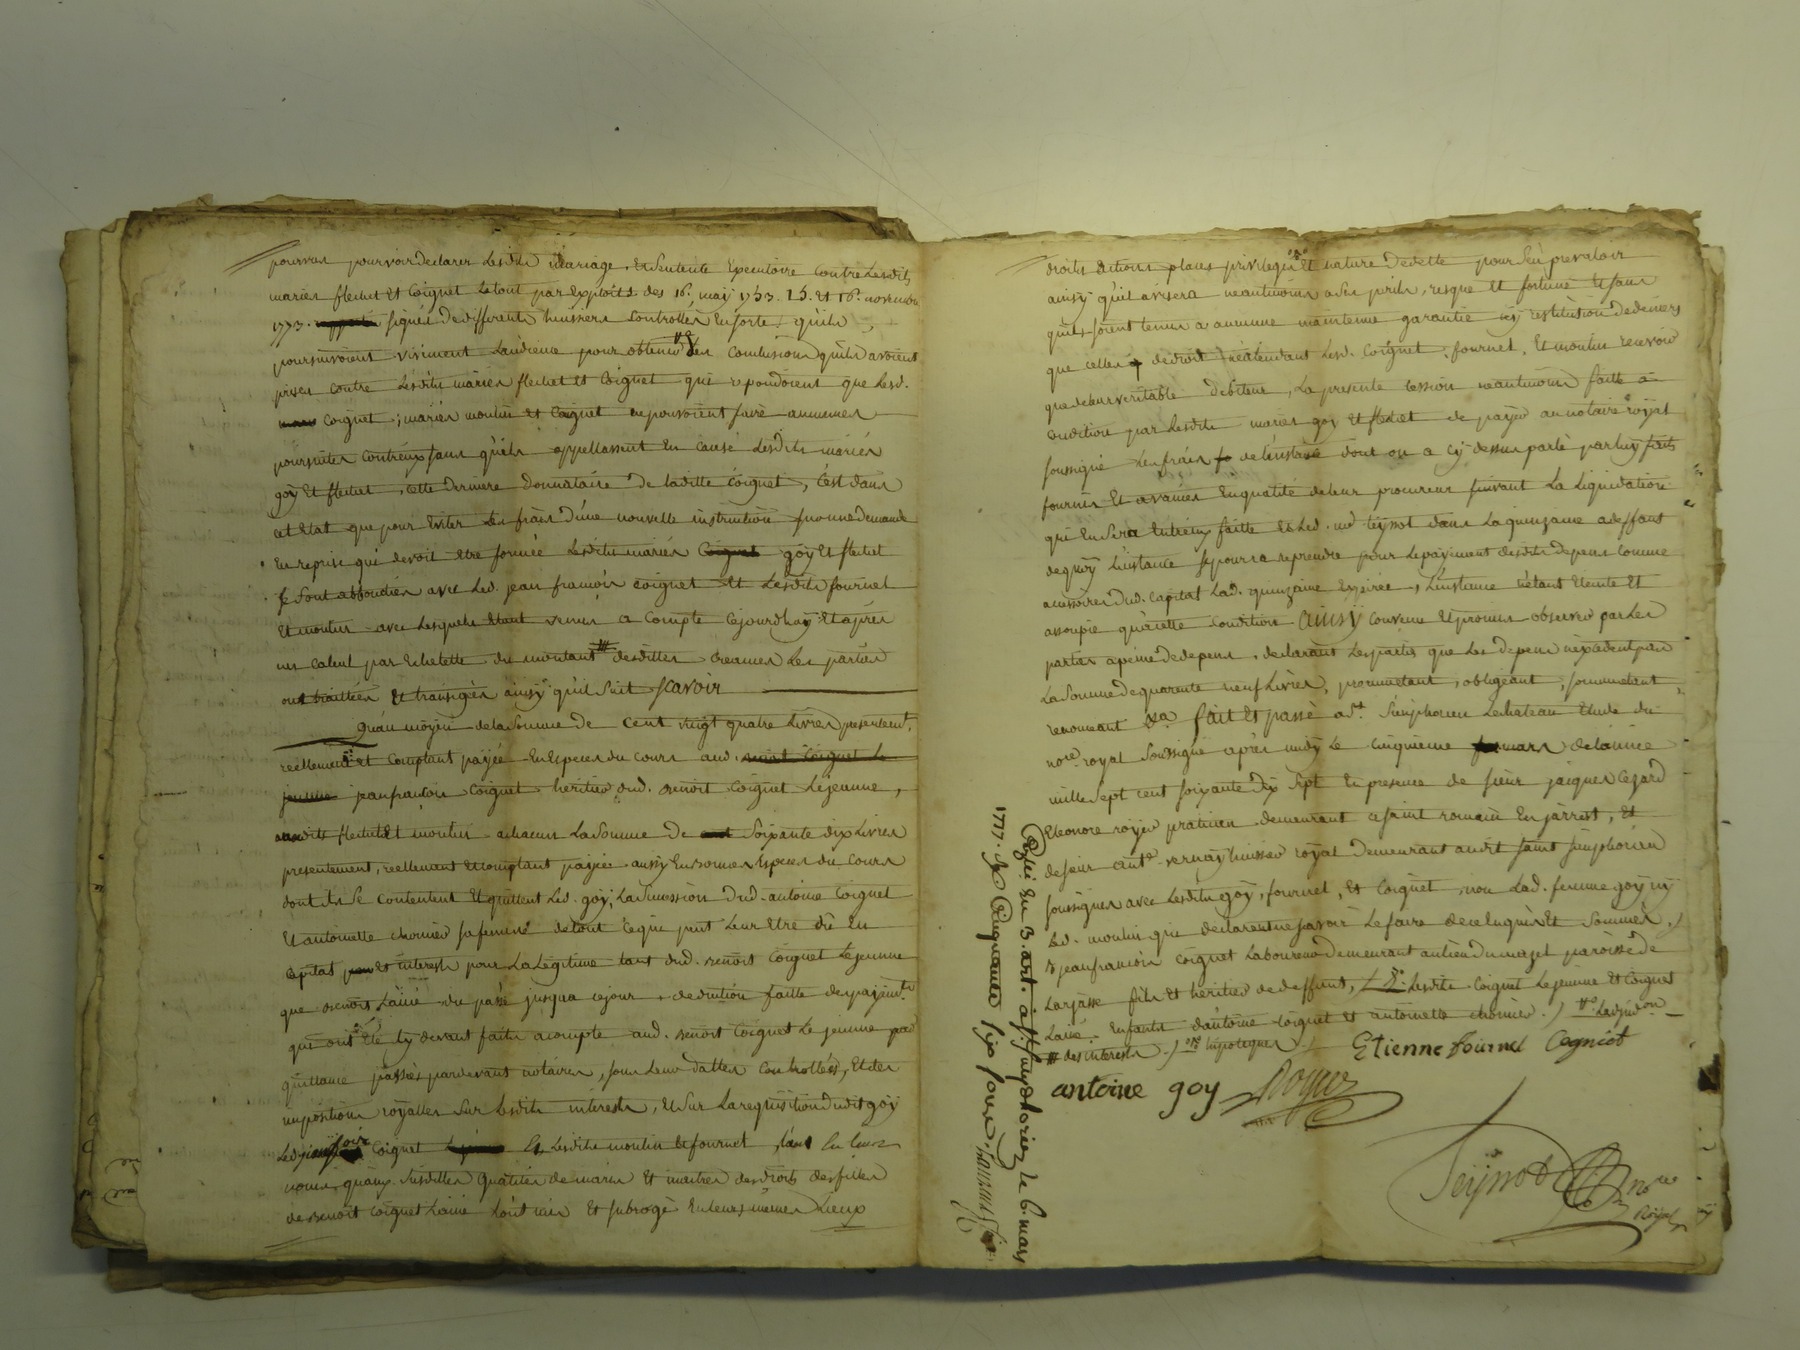 pourvus pour voir declarer lesdits mariage, et sentente executoire contre lesdits
mariés flechet et Coignet le tout par exploits des 16e. may 1753. 15. et 16e. novembre
1773. signés de differents huissiers controllés en sorte qu'ils
poursuivoient vivement l'audience pour obtenir les conclusions qu'ils avoient
prises contre lesdits mariés flechet et Coignet qui repondoient que lesd.
Coignet; mariés moulin et Coignet ne pouvoient faire aucunes
poursuites contr'eux sans qu'ils appellassent en cause lesdits mariés
goy et flechet, cette derniere donnataire de laditte coignet, c'est dans
cet etat que pour eviter les frais d'une nouvelle instruction sur une demande
en reprise qui devoit etre formée lesdits mariés goy et flechet
se sont abboudiés avec led. jean françois coignet et lesdits fournel
et moulin avec lesquels etant venus a compte cejourdhuy et après
un calcul par echelette du montant desdittes creances les parties
ont traittées et transigées ainsy qu'il suit scavoir
Qu'au moyen de la somme de cent vingt quatre livres presentemt.
reellement et comptant payée en especes du cours aud.
jean françois Coignet heritier dud. benoit Coignet lejeune,
et moulin a chacun la somme de soixante dix livres
presentement, reellement et comptant payée aussy en bonnes especes du cours
dont ils se contentent et quittent led. goy, la succession dud. antoine Coignet
et antoinette chornier sa femme de tout ce qui peut leur etre dû en
capital et interests pour la legitime tant dud. benoit Coignet lejeune
que benoit l'ainé du passé jusqu'a cejour, deduction faitte des payemts.
qui ont été cy devant faits acompte aud. benoit Coignet le jeune par
quittance passées pardevant notaires, sous leur dattes controllées, et des
impositions royalles sur lesdits interests, et sur la requisition dudit goy
Coignet et lesdits moulin et fournel, tant en leurs
noms qu'aux susdittes qualités de maris et maitres des droits des filles
de benoit Coignet l'ainé l'ont mis et subrogé en leurs mêmes lieux
droits actions places privileges et nature de dette pour s'en prevaloir
ainsy qu'il avisera neantmoins a ses perils, risque et fortune et sans
qu'ils soient tenus a aucunne maintenue garantie ny restitution de deniers
que celles de droit n'entendant lesd. Coignet, fournel, et moulin recevoir
que de leur veritable debiteur, la presente cession neantmoins faitte a
condition par lesdits mariés goy et flechet de payer au notaire royal
soussigné les frais de l'instance dont on a cy dessus parlé par luy faits
fournis et avancés en qualité de leur procureur suivant la liquidation
qui en sera entr'eux faitte et led. me teyssot dans la quinzaine a deffaut
de quoy l'instance se poura reprendre pour le payement desdits depens comme
accessoires dud. capital lad. quinzaine expirée, l'instance n'etant eteinte et
assoupie qu'a cette condition ainsy convenu et promis observer par les
parties a peine de depens, declarant les parties que les depens n'excedent pas
la somme de quarente neuf livres, promettant, obligeant, soumettant,
renonceant &a. fait et passé a St. Simphorien le chateau etude du
nore. royal soussigné après midy le cinquieme mars de l'année
mille sept cent soixante dix sept en presence de sieur jacques Cezard
Eleonore royer praticien demeurant a saint romain en jarrest, et
de sieur antoe. vernay huissier royal demeurant audit saint simphorien
soussignés avec lesdits goy, fournel, et Coignet non lad. femme goy ny
led. moulin qui declarent ne savoir le faire de ce enquis et sommés
jean francois coignet laboureur demeurant au lieu du mazet paroisse de
Larjasse fils et heritier de deffunt, lesdits Coignet lejeune et Coignet
l'ainé enfants d'antoine Coignet et antoinette chornier.
des interests hipoteques
Etienne fournel Cogniot
antoine goy Royer
Teyssot nore
Royal
Con.lé En 3. art. à St. Simphorien le 6. mars
1777. Reçu Cinquante six sous,